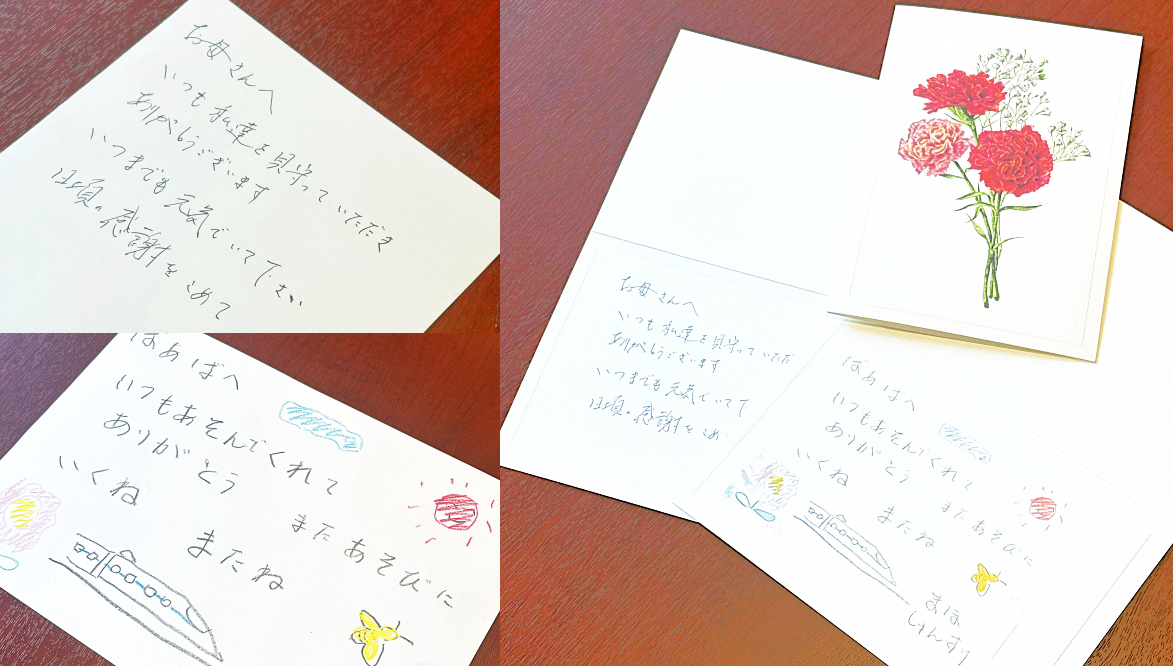 お母さんへ
いつも私達を見守っていただき
ありがとうございます
いつまでも元気でいて下さい
日頃の感謝をこめて
ばあばへ
いつもあそんでくれて
ありがどう
またあそびに
いくね
またね
お母さんへ
いつも私達を見守っていただ
ありがとうございます
いつまでも元気でいて下
日頃の感謝をこめ
ばあばへ
いつもあそんでくれて
ありがどう
またあそびに
いくね
またね
まほ